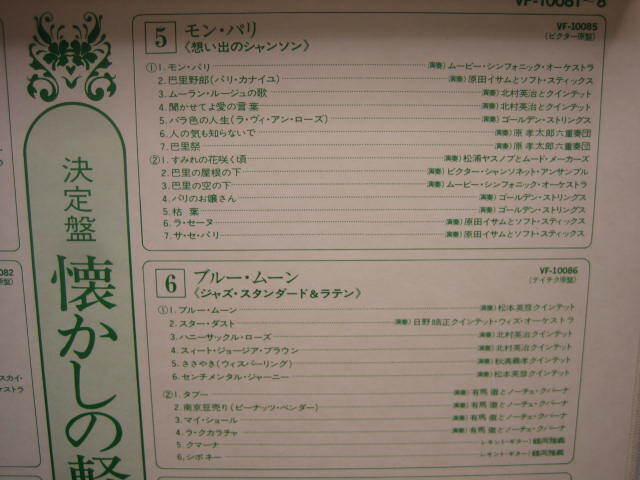 VF-10081〜8
5 モン・パリ
《想い出のシャンソン》
VF-10085
(ビクター原盤)
①1. モン・パリ 演奏)ムービー・シンフォニック・オーケストラ
2. 巴里野郎(パリ・カナイユ) 演奏)原田イサムとソフト・スティックス
3. ムーラン・ルージュの歌 演奏)北村英治とクインテット
4. 聞かせてよ愛の言葉 演奏)北村英治とクインテット
5. バラ色の人生(ラ・ヴィ・アン・ローズ) 演奏)ゴールデン・ストリングス
6. 人の気も知らないで 演奏)原 孝太郎六重奏団
7. 巴里祭 演奏)原 孝太郎六重奏団
②1. すみれの花咲く頃 演奏)松浦ヤスノブとムード・メーカーズ
2. 巴里の屋根の下 演奏)ビクター・シャンソネット・アンサンブル
3. 巴里の空の下 演奏)ムービー・シンフォニック・オーケストラ
4. パリのお嬢さん 演奏)ゴールデン・ストリングス
5. 枯葉 演奏)ゴールデン・ストリングス
6. ラ・セーヌ 演奏)原田イサムとソフト・スティックス
7. サ・セ・パリ 演奏)原田イサムとソフト・スティックス
決定盤
懐かしの軽
082
原盤)
スカイ・
ケストラ
6 ブルー・ムーン
《ジャズ・スタンダード&ラテン》
VF-10086
(テイチク原盤)
①1. ブルー・ムーン 演奏)松本英彦クインテット
2. スター・ダスト 演奏)日野皓正クインテット・ウィズ・オーケストラ
3. ハニーサックル・ローズ 演奏)北村英治クインテット
4. スィート・ジョージア・ブラウン 演奏)北村英治クインテット
5. ささやき(ウィスパーリング) 演奏)秋満義孝クインテット
6. センチメンタル・ジャーニー 演奏)松本英彦クインテット
②1. タブー 演奏)有馬 徹とノーチェ・クバーナ
2. 南京豆売り(ピーナッツ・ベンダー) 演奏)有馬 徹とノーチェ・クバーナ
3. マイ・ショール 演奏)有馬 徹とノーチェ・クバーナ
4. ラ・クカラチャ 演奏)有馬 徹とノーチェ・クバーナ
5. クマーナ レキント・ギター)鶴岡雅義
6. シボネー レキント・ギター)鶴岡雅義